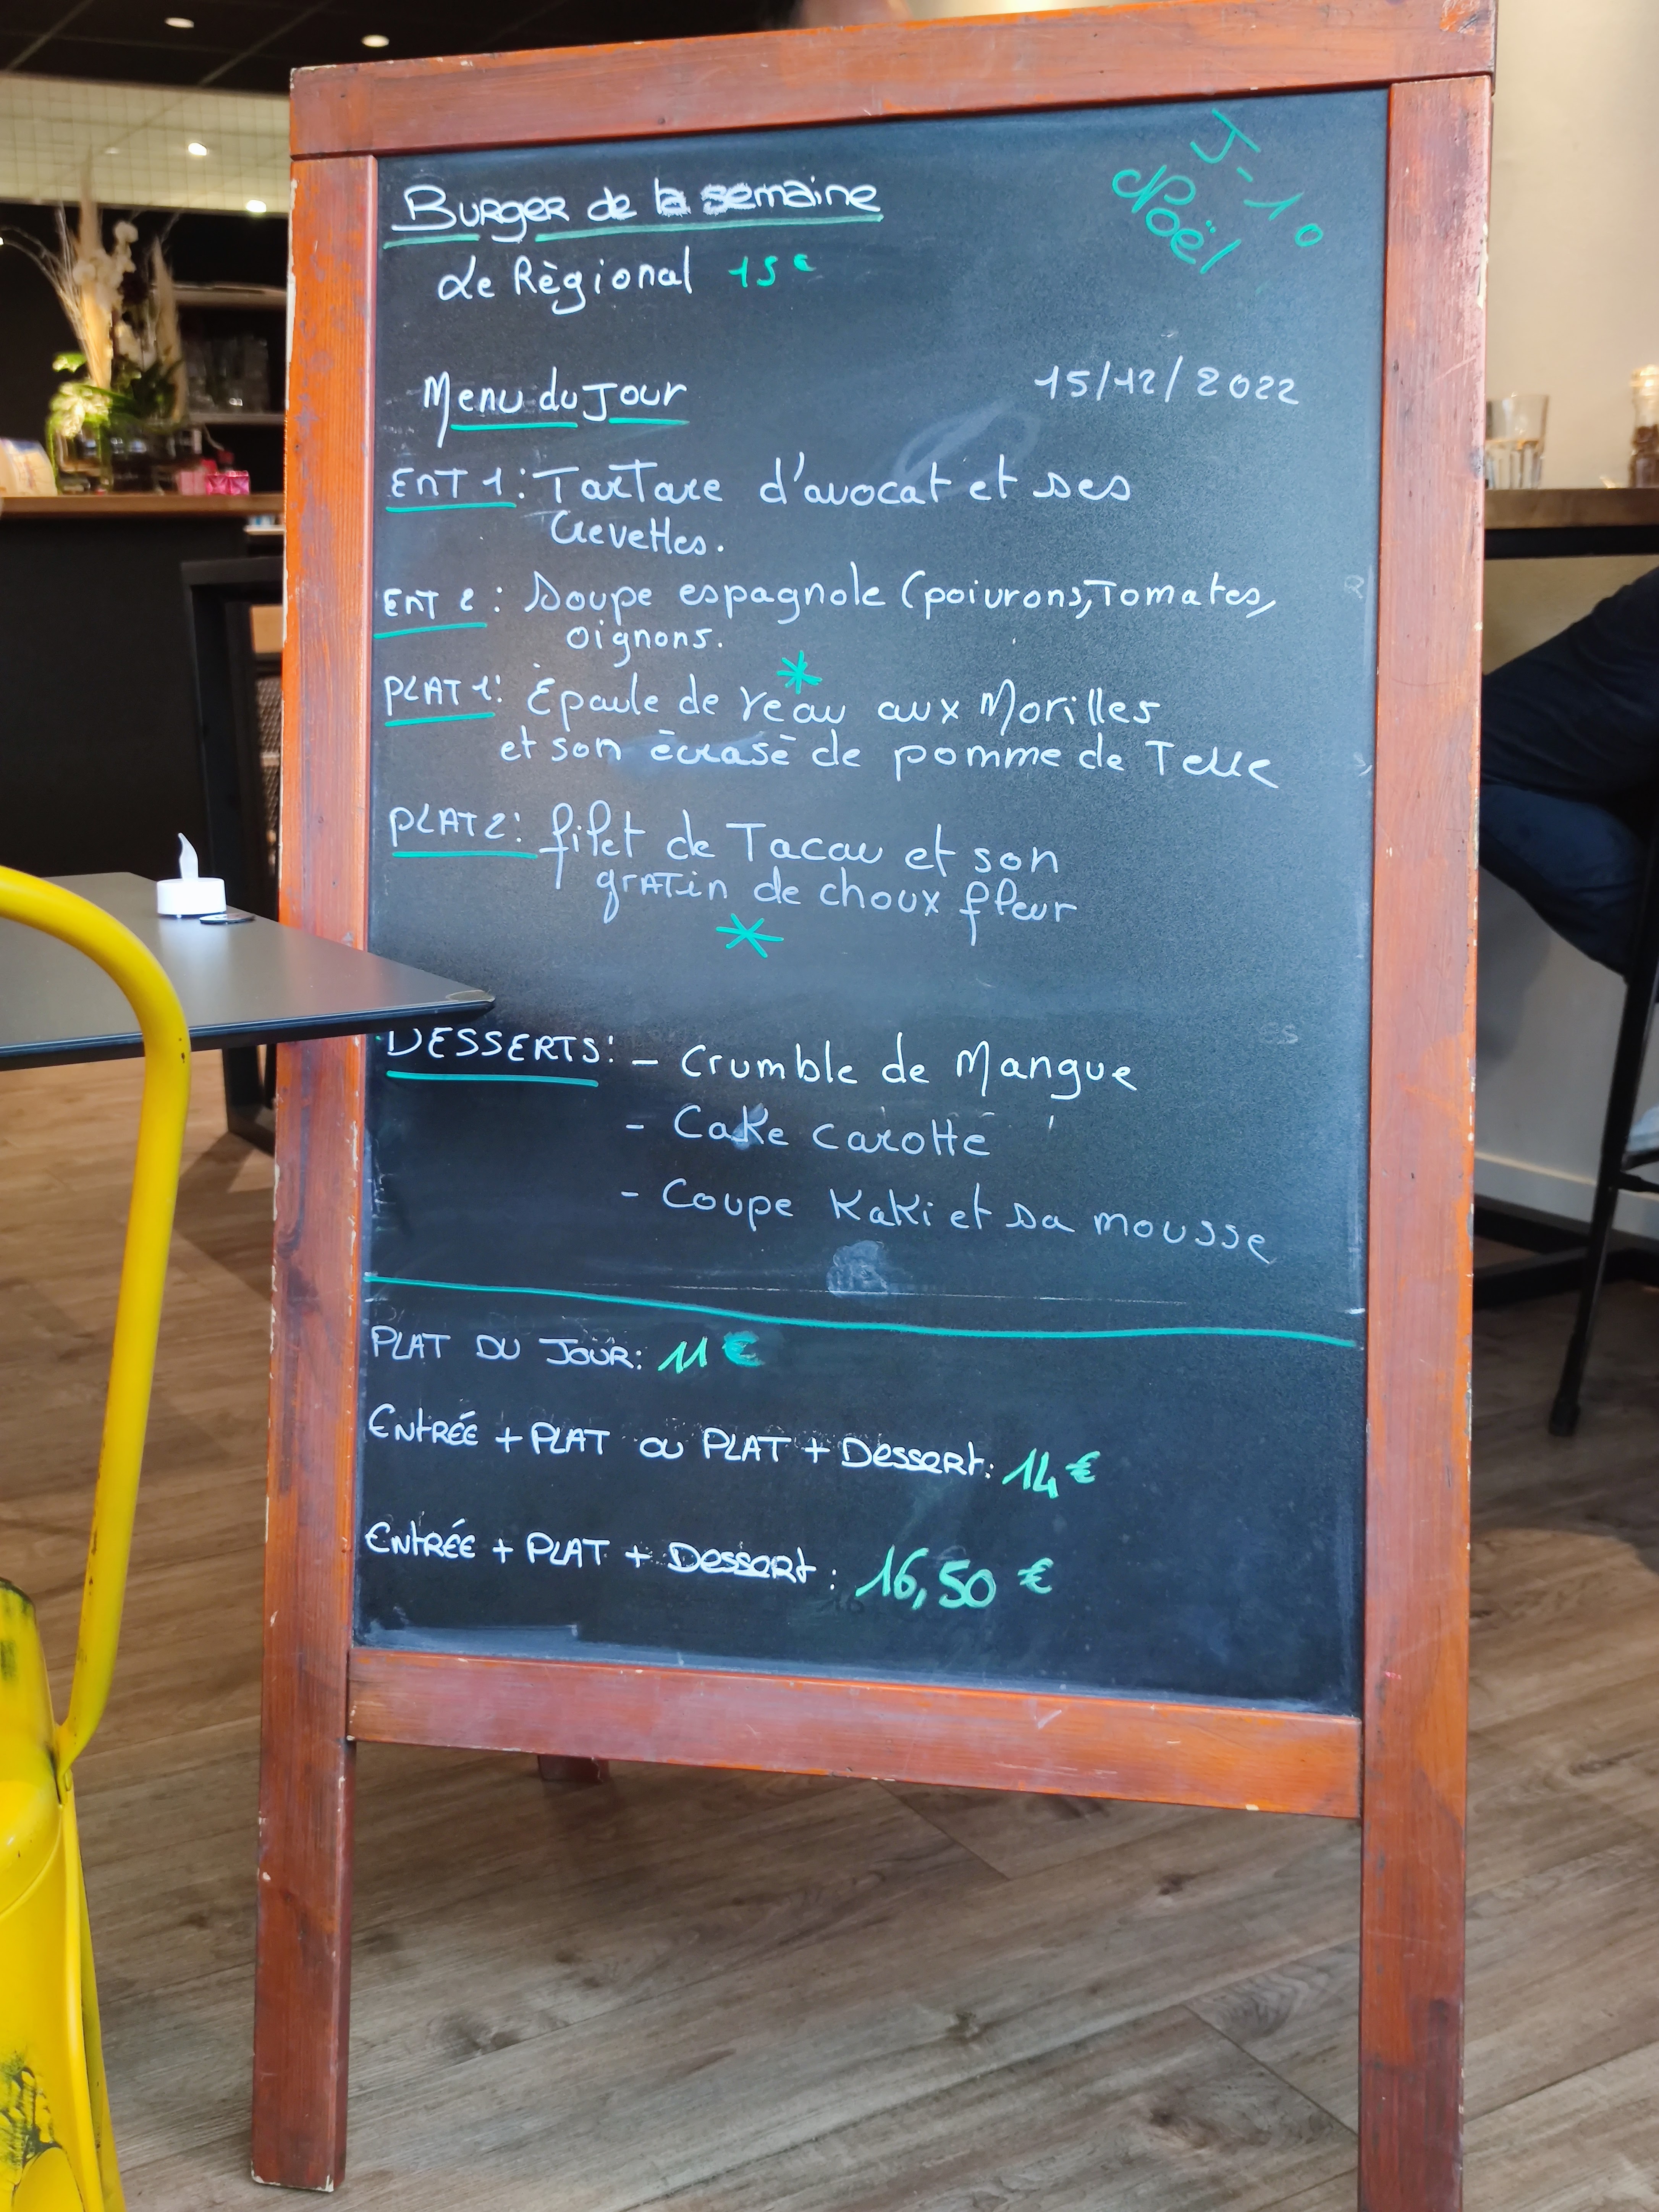 Burger de la semaine
J-10
Noël
Le Règional 15€
Menu du Jour
15/12/2022
ENT 1: Tartare d'avocat et ses
Crevettes.
ENT 2: Soupe espagnole (poivrons, Tomates,
oignons.
PLAT 1: Épaule de veau aux Morilles
et son ècrasè de pomme de Terre
PLAT 2: filet de Tacau et son
gratin de choux fleur
DESSERTS: - Crumble de Mangue
- Cake carotte
- Coupe Kaki et sa mousse
PLAT DU JOUR: 11 €
Entrée + PLAT ou PLAT + Dessert: 14 €
Entrée + PLAT + Dessert: 16,50 €